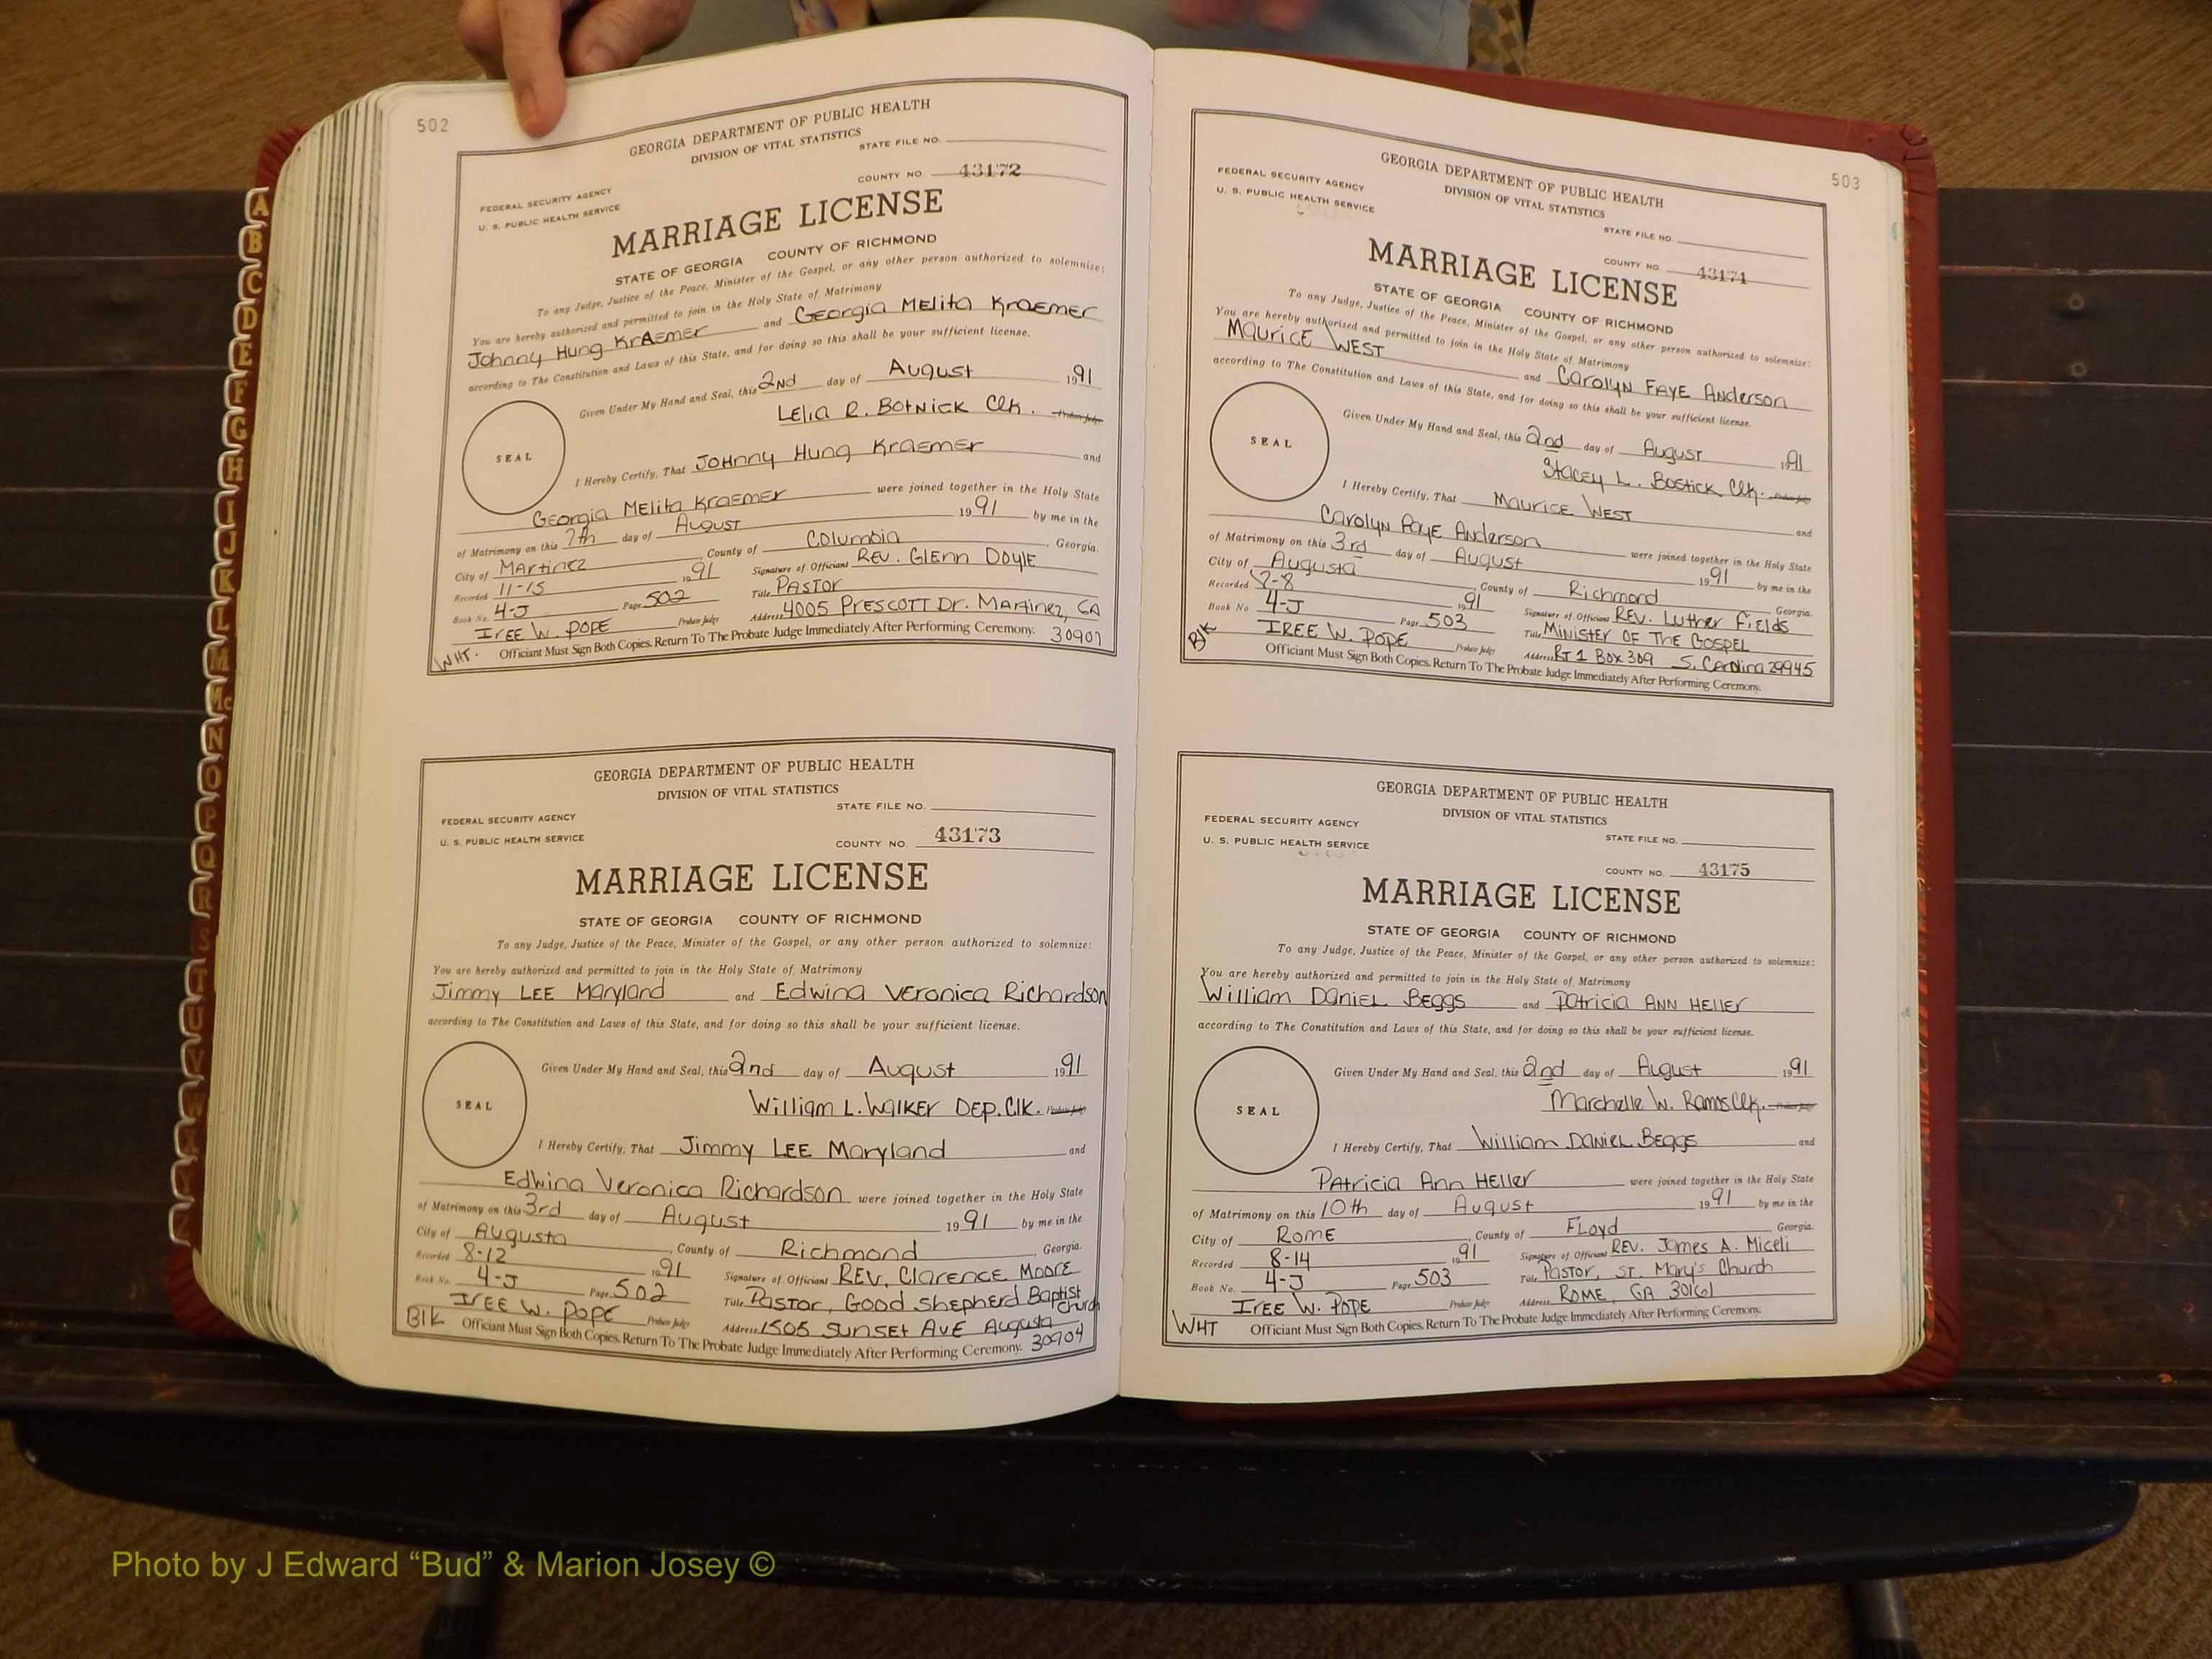 502
GEORGIA DEPARTMENT OF PUBLIC HEALTH
DIVISION OF VITAL STATISTICS
STATE FILE NO.
FEDERAL SECURITY AGENCY
U. S. PUBLIC HEALTH SERVICE
COUNTY NO. 43172
MARRIAGE LICENSE
STATE OF GEORGIA COUNTY OF RICHMOND
To any Judge, Justice of the Peace, Minister of the Gospel, or any other person authorized to solemnize:
You are hereby authorized and permitted to join in the Holy State of Matrimony
Johnny Hung Kraemer and Georgia Melita Kraemer
according to The Constitution and Laws of this State, and for doing so this shall be your sufficient license.
Given Under My Hand and Seal, this 2nd day of August 1991
Lelia R. Botnick Clk. Probate Judge
SEAL
I Hereby Certify, That Johnny Hung Kraemer and
Georgia Melita Kraemer were joined together in the Holy State
of Matrimony on this 7th day of August 1991 by me in the
City of Martinez, County of Columbia, Georgia.
Recorded 11-15 1991 Signature of Officiant Rev. Glenn Doyle
Book No. 4-J Page 502 Title Pastor
Iree W. Pope Probate Judge Address 4005 Prescott Dr. Martinez, GA
WHT. Officiant Must Sign Both Copies. Return To The Probate Judge Immediately After Performing Ceremony. 30907
GEORGIA DEPARTMENT OF PUBLIC HEALTH
DIVISION OF VITAL STATISTICS
STATE FILE NO.
FEDERAL SECURITY AGENCY
U. S. PUBLIC HEALTH SERVICE
COUNTY NO. 43173
MARRIAGE LICENSE
STATE OF GEORGIA COUNTY OF RICHMOND
To any Judge, Justice of the Peace, Minister of the Gospel, or any other person authorized to solemnize:
You are hereby authorized and permitted to join in the Holy State of Matrimony
Jimmy Lee Maryland and Edwina Veronica Richardson
according to The Constitution and Laws of this State, and for doing so this shall be your sufficient license.
Given Under My Hand and Seal, this 2nd day of August 1991
William L. Walker Dep. Clk. Probate Judge
SEAL
I Hereby Certify, That Jimmy Lee Maryland and
Edwina Veronica Richardson were joined together in the Holy State
of Matrimony on this 3rd day of August 1991 by me in the
City of Augusta, County of Richmond, Georgia.
Recorded 8-12 1991 Signature of Officiant Rev. Clarence Moore
Book No. 4-J Page 502 Title Pastor, Good Shepherd Baptist Church
Iree W. Pope Probate Judge Address 1505 Sunset Ave Augusta
Blk Officiant Must Sign Both Copies. Return To The Probate Judge Immediately After Performing Ceremony. 30904
503
GEORGIA DEPARTMENT OF PUBLIC HEALTH
DIVISION OF VITAL STATISTICS
FEDERAL SECURITY AGENCY
U. S. PUBLIC HEALTH SERVICE
STATE FILE NO.
COUNTY NO. 43174
MARRIAGE LICENSE
STATE OF GEORGIA COUNTY OF RICHMOND
To any Judge, Justice of the Peace, Minister of the Gospel, or any other person authorized to solemnize:
You are hereby authorized and permitted to join in the Holy State of Matrimony
Maurice West and Carolyn Faye Anderson
according to The Constitution and Laws of this State, and for doing so this shall be your sufficient license.
Given Under My Hand and Seal, this 2nd day of August 1991
Stacey L. Bostick Clk. Probate Judge
SEAL
I Hereby Certify, That Maurice West and
Carolyn Faye Anderson were joined together in the Holy State
of Matrimony on this 3rd day of August 1991 by me in the
City of Augusta, County of Richmond, Georgia.
Recorded 1991 Signature of Officiant Rev. Luther Fields
Book No. 4-J Page 503 Title Minister of The Gospel
Iree W. Pope Probate Judge Address Rt 1 Box 309 S. Carolina 29945
Blk Officiant Must Sign Both Copies. Return To The Probate Judge Immediately After Performing Ceremony.
GEORGIA DEPARTMENT OF PUBLIC HEALTH
DIVISION OF VITAL STATISTICS
FEDERAL SECURITY AGENCY
STATE FILE NO.
U. S. PUBLIC HEALTH SERVICE
COUNTY NO. 43175
MARRIAGE LICENSE
STATE OF GEORGIA COUNTY OF RICHMOND
To any Judge, Justice of the Peace, Minister of the Gospel, or any other person authorized to solemnize:
You are hereby authorized and permitted to join in the Holy State of Matrimony
William Daniel Beggs and Patricia Ann Heller
according to The Constitution and Laws of this State, and for doing so this shall be your sufficient license.
Given Under My Hand and Seal, this 2nd day of August 1991
Marchelle W. Ramos Clk. Probate Judge
SEAL
I Hereby Certify, That William Daniel Beggs and
Patricia Ann Heller were joined together in the Holy State
of Matrimony on this 10th day of August 1991 by me in the
City of Rome, County of Floyd, Georgia.
Recorded 8-14 1991 Signature of Officiant Rev. James A. Miceli
Book No. 4-J Page 503 Title Pastor, St. Mary's Church
Iree W. Pope Probate Judge Address Rome, GA 30161
WHT Officiant Must Sign Both Copies. Return To The Probate Judge Immediately After Performing Ceremony.
A
B
C
D
E
F
G
H
I
J
K
L
M
Mc
N
O
P
Q
R
S
T
U
V
Photo by J Edward “Bud” & Marion Josey ©